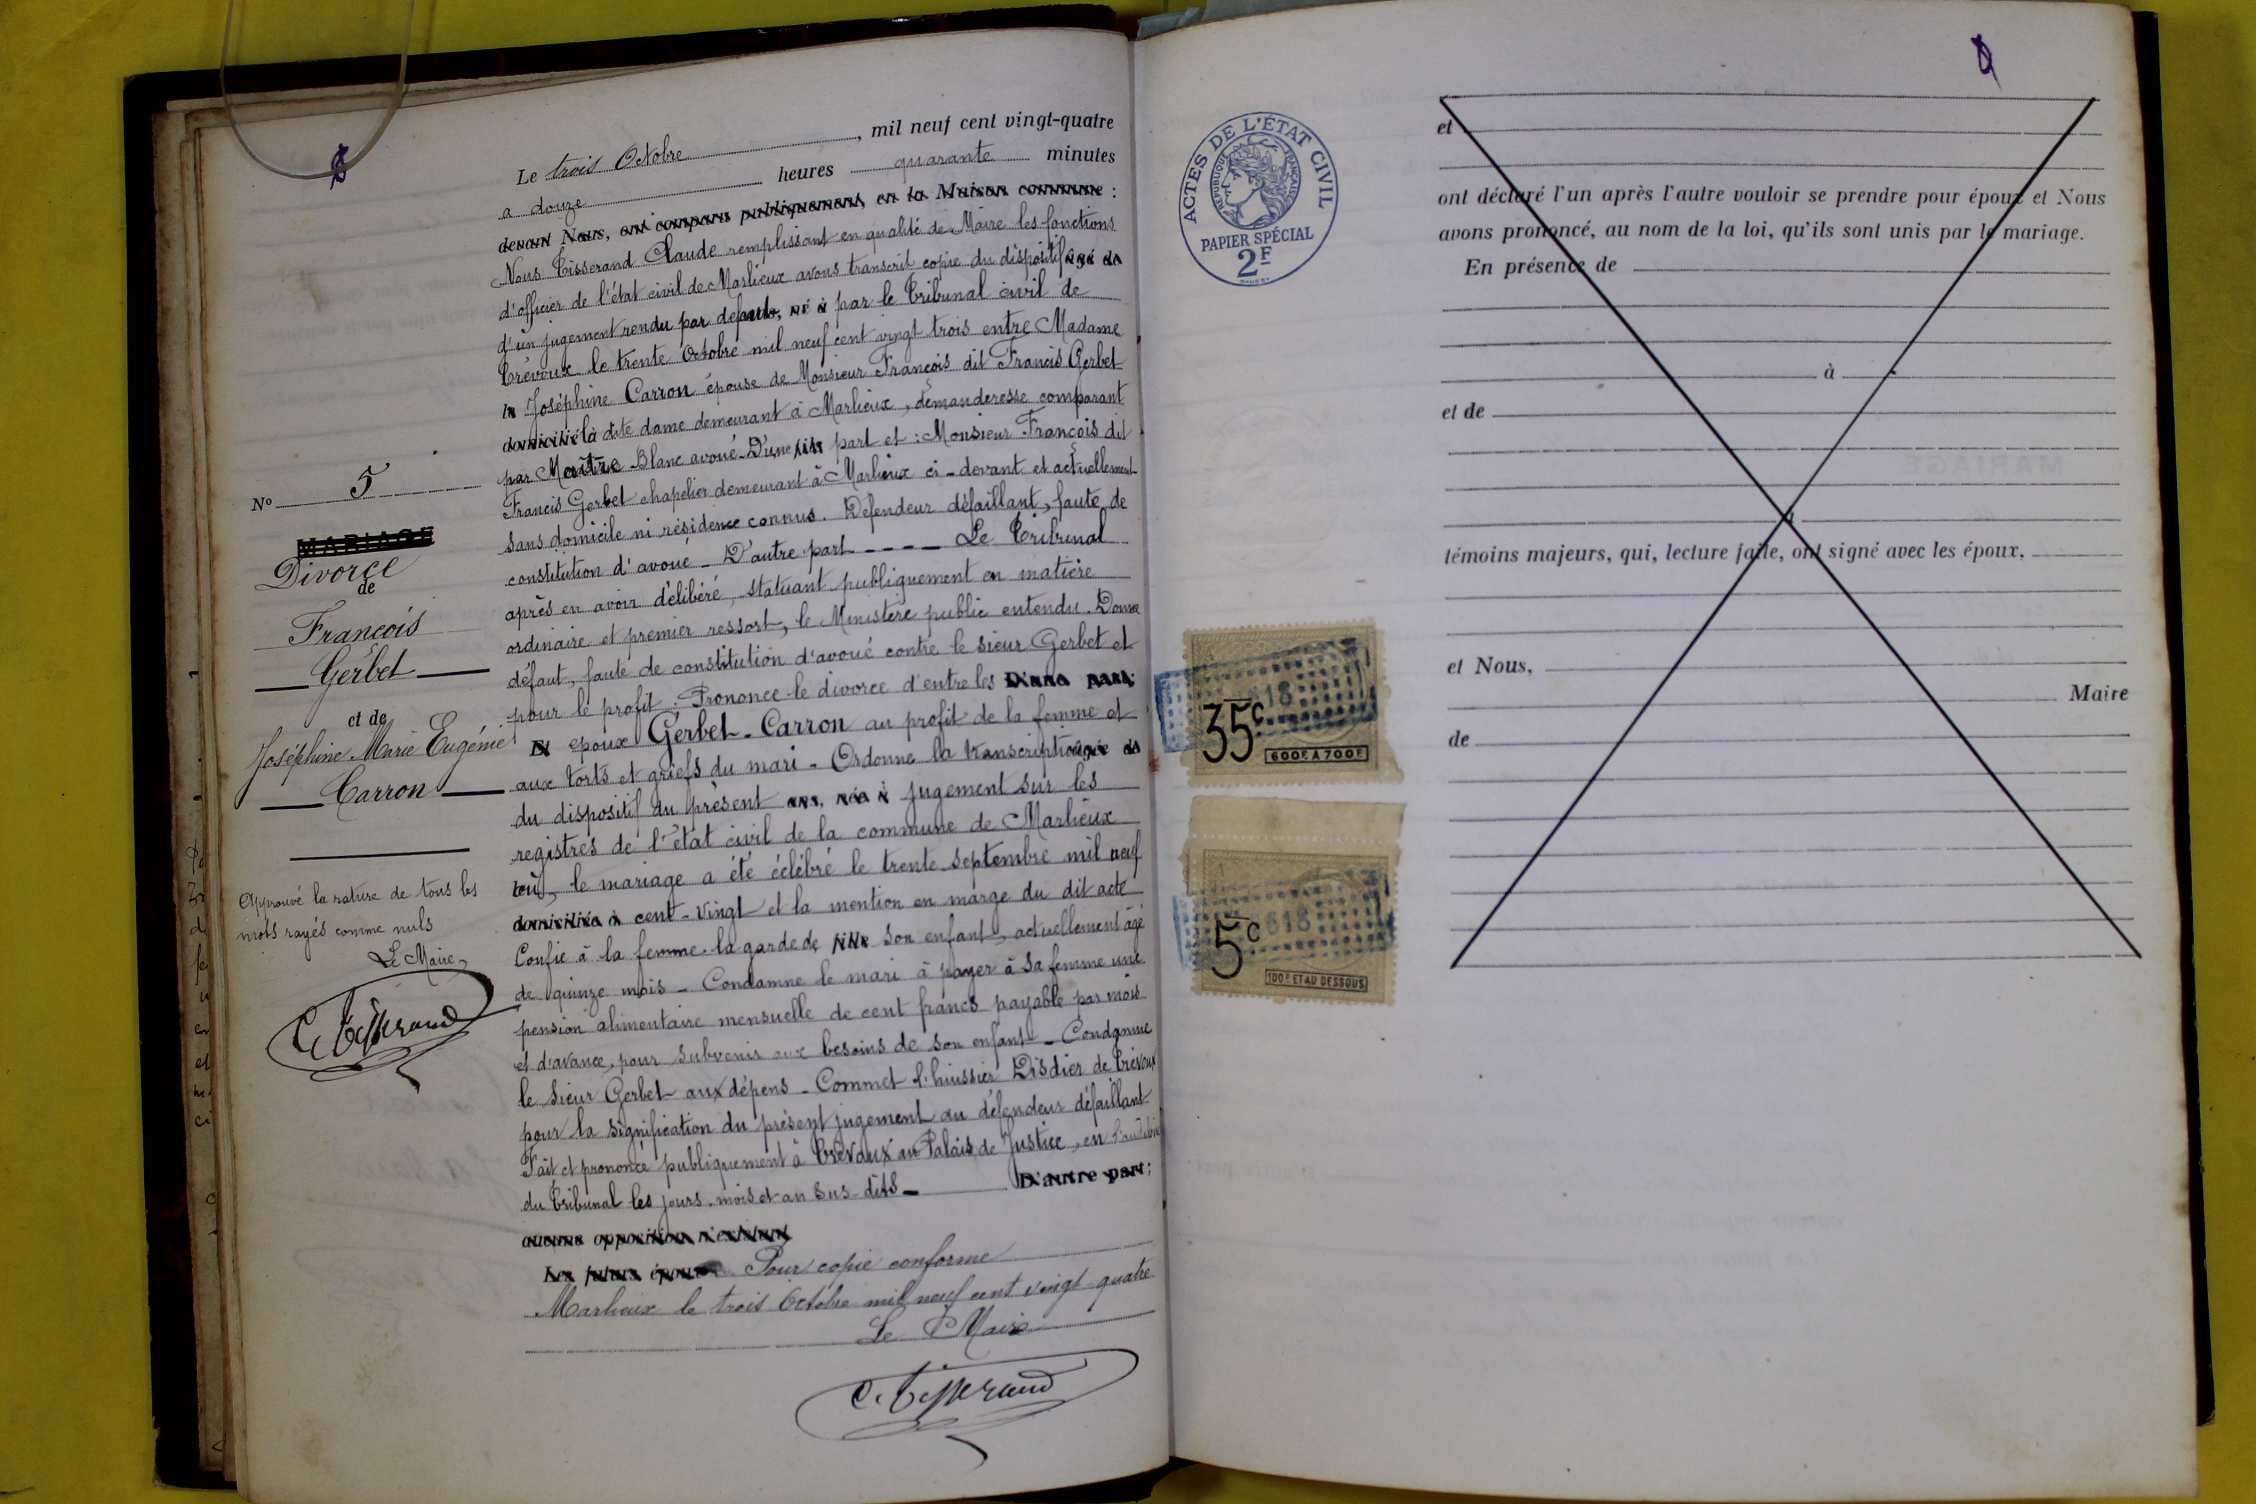 Le trois Octobre, mil neuf cent vingt-quatre
a douze heures quarante minutes
devant Nous, ont comparu publiquement, en la Maison commune :
Nous Tisserand Claude remplissant en qualité de Maire les fonctions
d'officier de l'état civil de Marlieux avons transcrit copie du dispositif âgé de
d'un jugement rendu par défaut, né à par le Tribunal civil de
Trévoux le trente Octobre mil neuf cent vingt trois entre Madame
Joséphine Carron épouse de Monsieur François dit Francis Gerbet
domicilié là dite dame demeurant à Marlieux, demanderesse comparant
par Maître Blanc avoué - D'une fils part et : Monsieur François dit
Francis Gerbet chapelier demeurant à Marlieux ci-devant et actuellement
sans domicile ni résidence connus. Defendeur défaillant, faute de
constitution d'avoué - D'autre part - - - - Le Tribunal
après en avoir délibéré, statuant publiquement en matière
ordinaire et premier ressort, le Ministère public entendu. Donne
défaut, faute de constitution d'avoué contre le sieur Gerbet et
pour le profit. Prononce le divorce d'entre les D'une part;
Et époux Gerbet-Carron au profit de la femme et
aux torts et griefs du mari - Ordonne la transcription âgée de
du dispositif du présent ans, née à jugement sur les
registres de l'état civil de la commune de Marlieux
où, le mariage a été célébré le trente septembre mil neuf
domiciliée à cent-vingt et la mention en marge du dit acte
Confie à la femme la garde de fille son enfant, actuellement âgé
de quinze mois - Condamne le mari à payer à sa femme une
pension alimentaire mensuelle de cent francs payable par mois
et d'avance, pour subvenir aux besoins de son enfant - Condamne
le sieur Gerbet aux dépens - Commet l'huissier Disdier de Trévoux
pour la signification du présent jugement au défendeur défaillant
Fait et prononcé publiquement à Trévoux au Palais de Justice, en
du Tribunal les jours, mois et an sus-dits - D'autre part;
aucune opposition n'existant
Les futurs époux Pour copie conforme
Marlieux le trois Octobre mil neuf cent vingt-quatre
Le Maire
C. Tisserand
No 5
MARIAGE
Divorce
de
François
Gerbet
et de
Joséphine Marie Eugénie
Carron
Approuvé la rature de tous les
mots rayés comme nuls
Le Maire
C. Tisserand
ACTES DE L'ÉTAT CIVIL
REPUBLIQUE FRANÇAISE
PAPIER SPÉCIAL
2F
618
35c
600F. A 700F.
618
5c
100F. ET AU DESSOUS
et
ont déclaré l'un après l'autre vouloir se prendre pour époux et Nous
avons prononcé, au nom de la loi, qu'ils sont unis par le mariage.
En présence de
à
et de
à
témoins majeurs, qui, lecture faite, ont signé avec les époux.
et Nous,
Maire
de